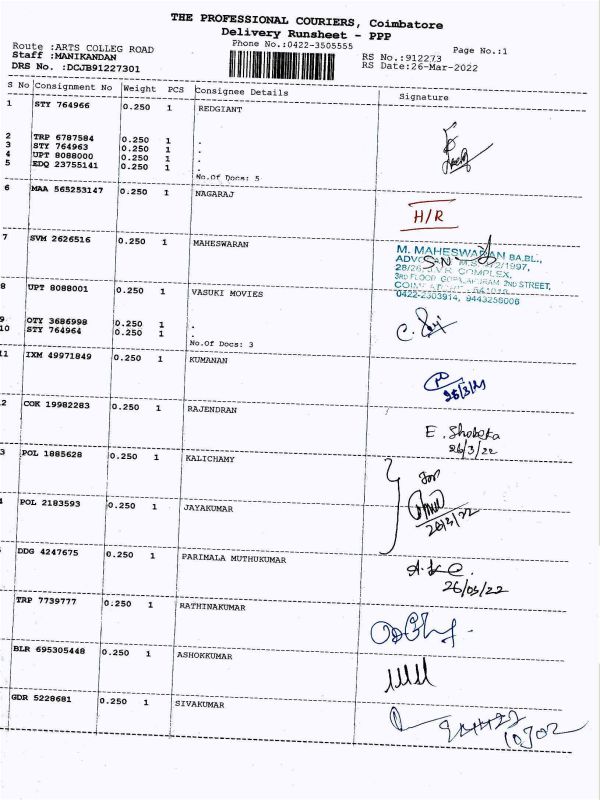 THE PROFESSIONAL COURIERS, Coimbatore
Delivery Runsheet - PPP
Phone No.:0422-3505555
Page No.:1
Route :ARTS COLLEG ROAD
Staff :MANIKANDAN
DRS No. :DCJB91227301
RS No.:912273
RS Date:26-Mar-2022
S No Consignment No Weight PCS Consignee Details Signature
1 STY 764966 0.250 1 REDGIANT
2 TRP 6787584 0.250 1 .
3 STY 764963 0.250 1 .
4 UPT 8088000 0.250 1 .
5 EDQ 23755141 0.250 1 .
No.Of Docs: 5
6 MAA 565253147 0.250 1 NAGARAJ
H/R
7 SVM 2626516 0.250 1 MAHESWARAN
M. MAHESWARAN BA,BL.,
28/26
COMPLEX,
3RD FLOOR GOPALAPURAM 2ND STREET,
0422-2303914, 9443256006
8 UPT 8088001 0.250 1 VASUKI MOVIES
9 OTY 3686998 0.250 1 .
10 STY 764964 0.250 1 .
No.Of Docs: 3
11 IXM 49971849 0.250 1 KUMANAN
2 COK 19982283 0.250 1 RAJENDRAN
E. Shobeka
26/3/22
3 POL 1885628 0.250 1 KALICHAMY
POL 2183593 0.250 1 JAYAKUMAR
DDG 4247675 0.250 1 PARIMALA MUTHUKUMAR
26/03/22
TRP 7739777 0.250 1 RATHINAKUMAR
BLR 695305448 0.250 1 ASHOKKUMAR
GDR 5228681 0.250 1 SIVAKUMAR